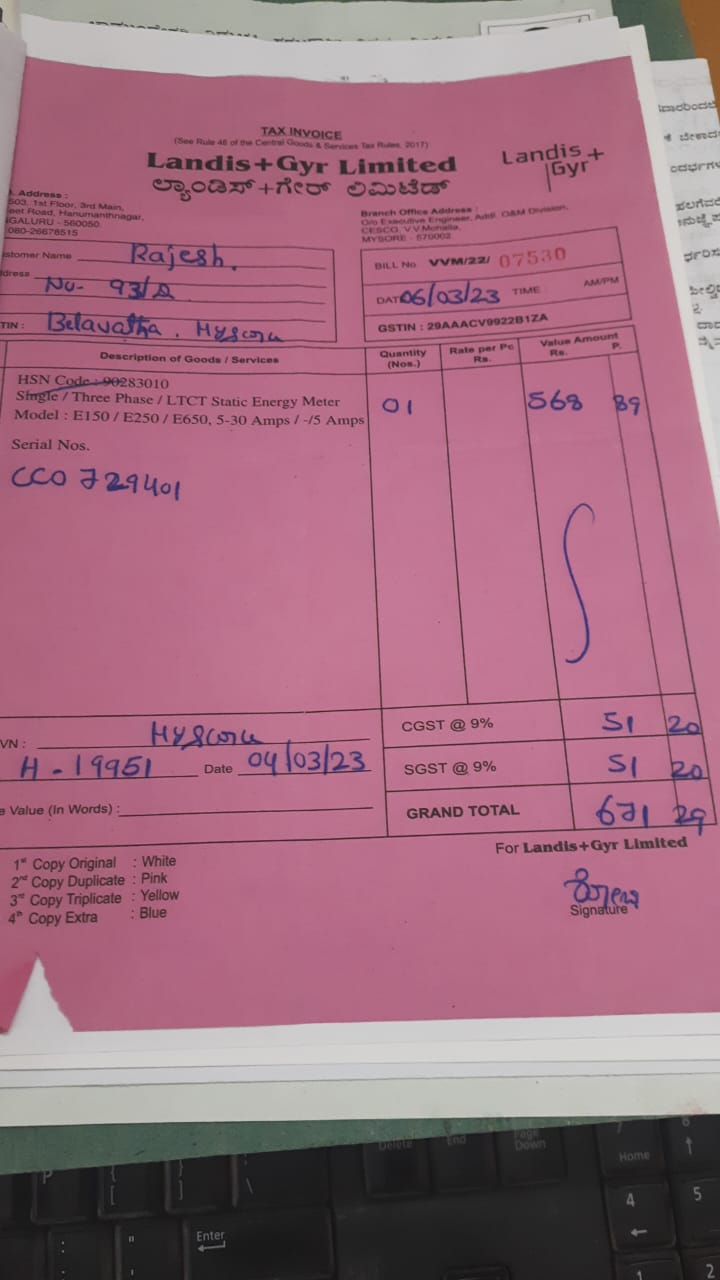 TAX INVOICE
(See Rule 46 of the Central Goods & Services Tax Rules, 2017)
Landis+Gyr Limited
ಲ್ಯಾಂಡಿಸ್+ಗೇರ್ ಲಿಮಿಟೆಡ್
Landis+
Gyr
Address :
503, 1st Floor, 3rd Main,
Road, Hanumanthnagar,
GALURU - 560050.
080-26678515
Branch Office Address :
O/o Executive Engineer, Addl. O&M Division,
CESCO, V.V.Mohalla,
MYSORE - 570002
stomer Name Rajesh.
dress No- 93/A
TIN : Belavatha, Mysore
BILL No. VVM/22/ 07530
DATE 06/03/23 TIME AM/PM
GSTIN : 29AAACV9922B1ZA
Description of Goods / Services
Quantity (Nos.)
Rate per Pc Rs.
Value Amount Rs. P.
HSN Code : 90283010
Single / Three Phase / LTCT Static Energy Meter
Model : E150 / E250 / E650, 5-30 Amps / -/5 Amps
01 568 89
Serial Nos.
CCO 729401
VN : Mysore
H - 19951 Date 04/03/23
Value (In Words) :
CGST @ 9% 51 20
SGST @ 9% 51 20
GRAND TOTAL 671 29
For Landis+Gyr Limited
Signature
1st Copy Original : White
2nd Copy Duplicate : Pink
3rd Copy Triplicate : Yellow
4th Copy Extra : Blue
Delete
End
Page Down
Home
Enter
4
5
1
2